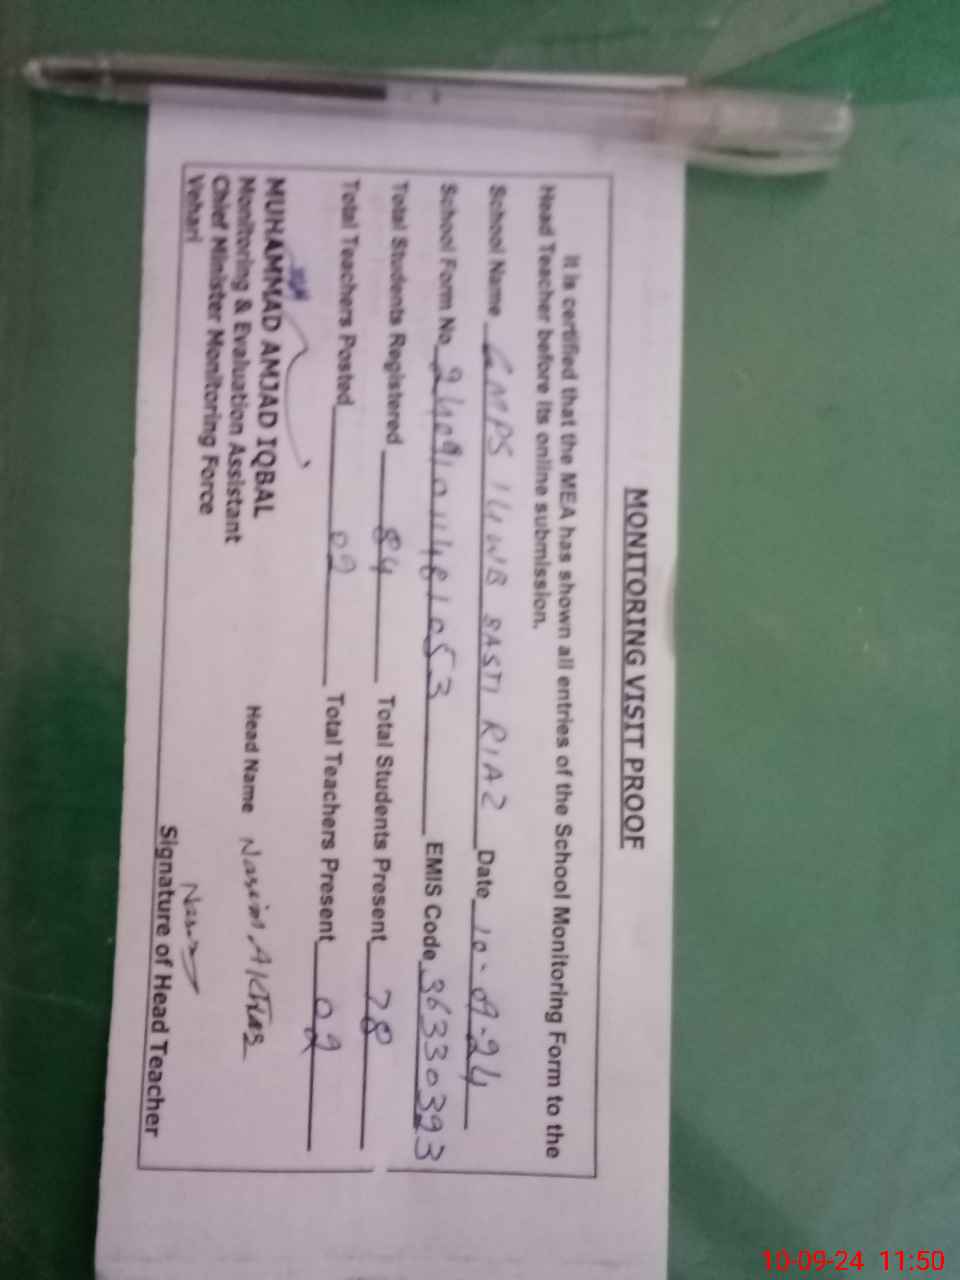 MONITORING VISIT PROOF
It is certified that the MEA has shown all entries of the School Monitoring Form to the
Head Teacher before its online submission.
School Name GMPS 14 WB BASTI RIAZ Date 10-09-24
School Form No. EMIS Code 36330393
Total Students Registered 84 Total Students Present 78
Total Teachers Posted 02 Total Teachers Present 02
MUHAMMAD AMJAD IQBAL
Monitoring & Evaluation Assistant
Chief Minister Monitoring Force
Vehari
Head Name Nasim Akhtar
Signature of Head Teacher
10-09-24 11:50